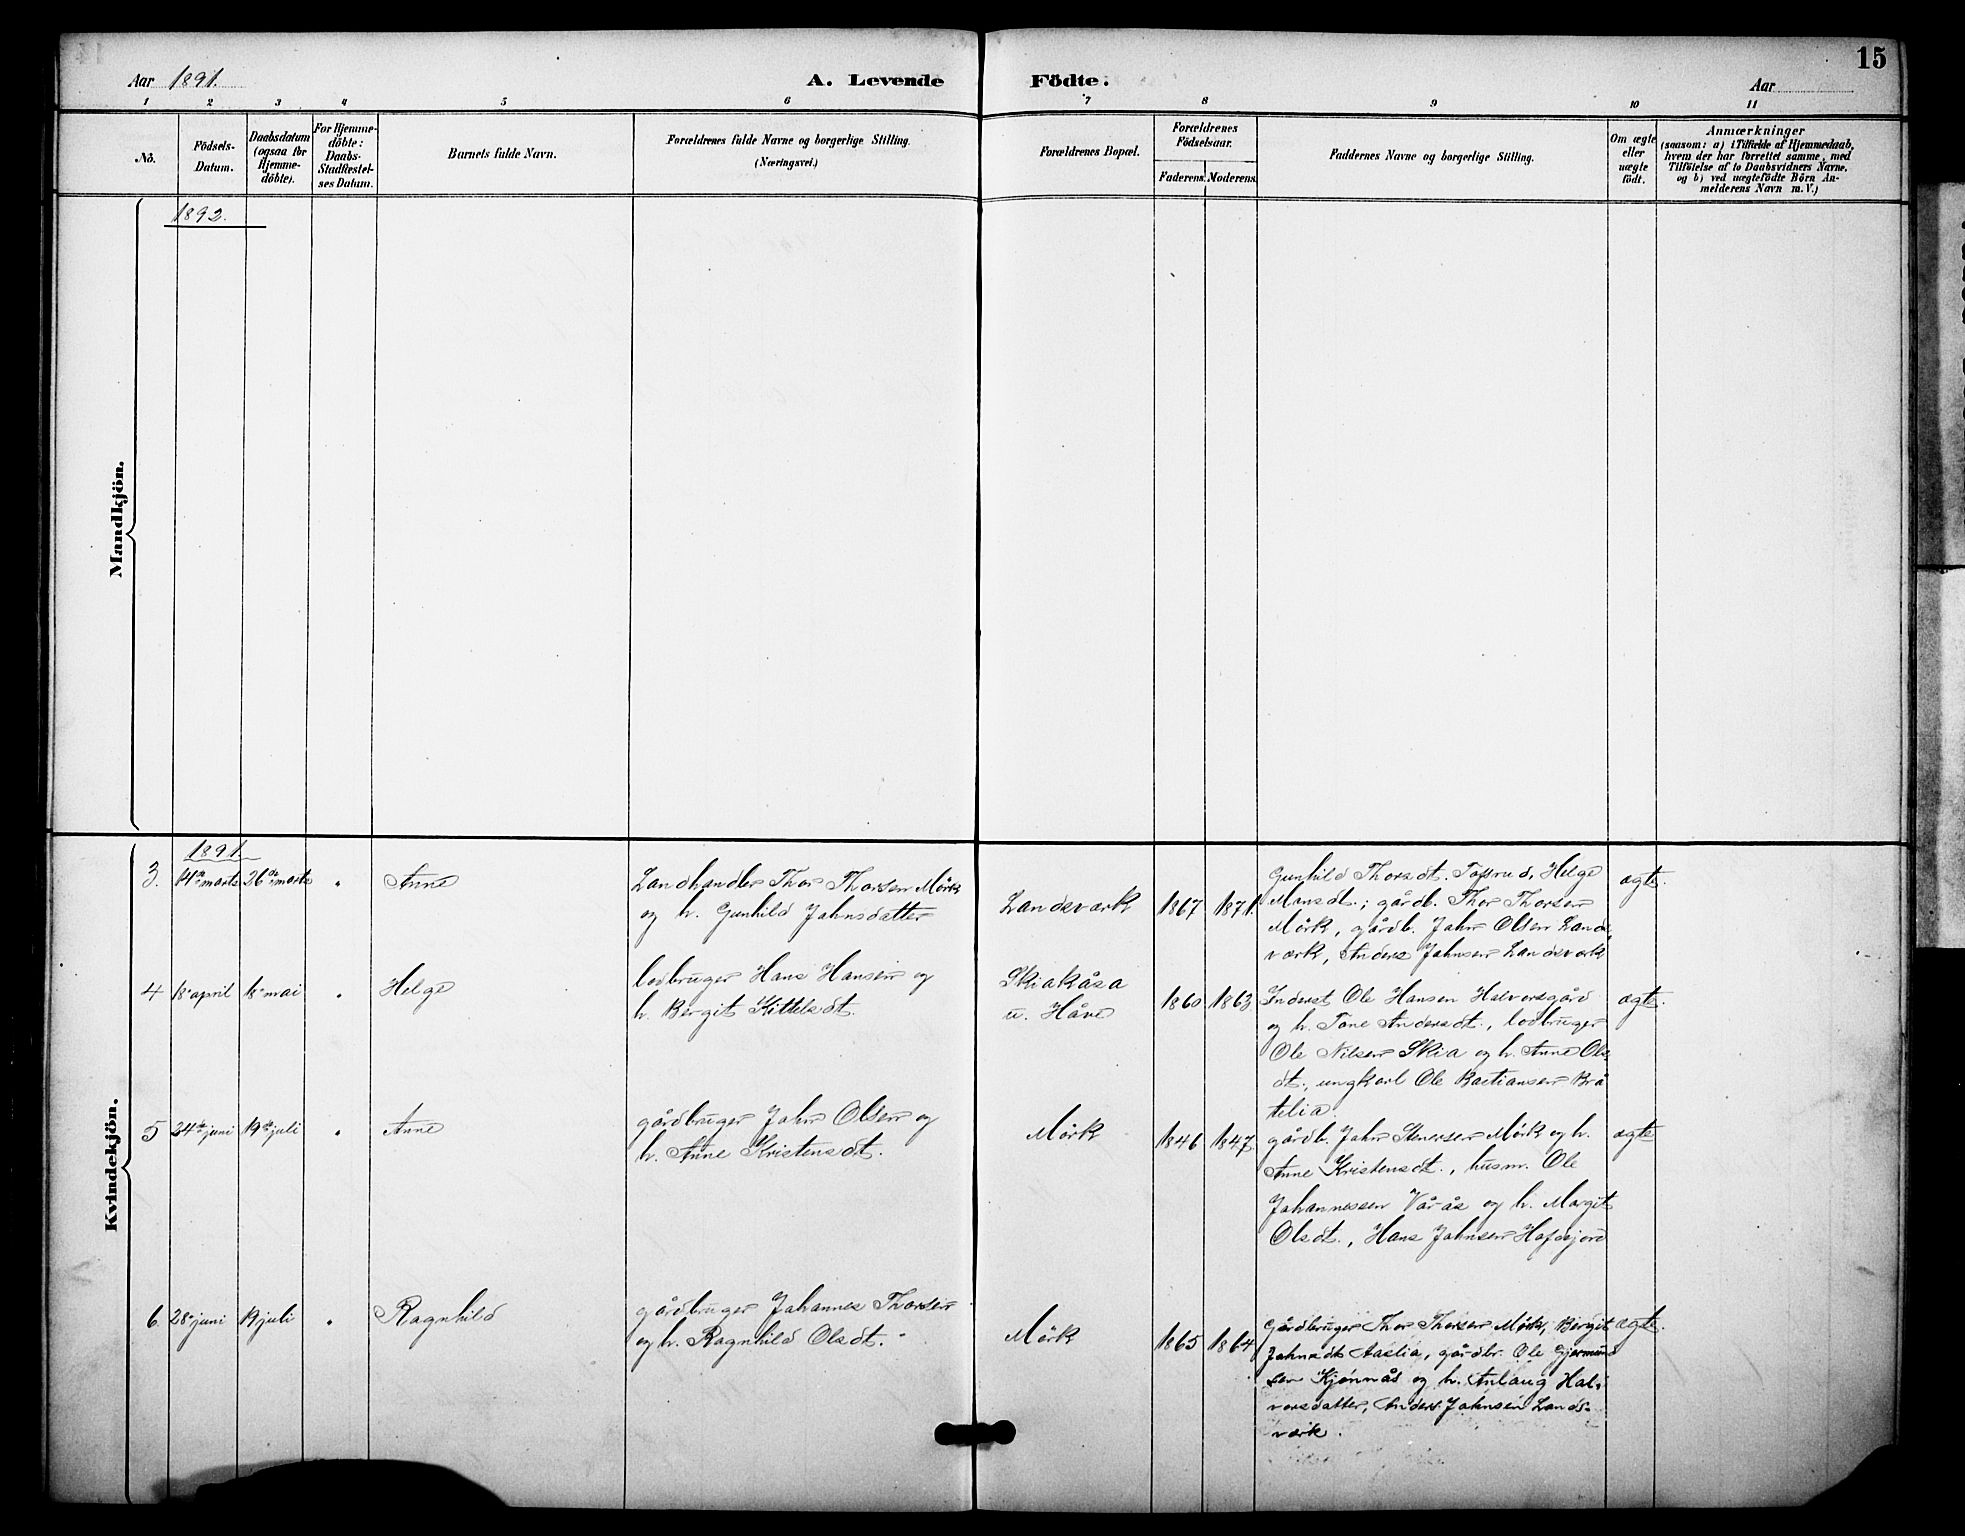 15
Aar 1891. A. Levende Födte. Aar
1 2 3 4 5 6 7 8 9 10 11
No.
Födsels-
Datum.
Daabsdatum
(ogsaa for
Hjemme-
döbte).
For Hjemme-
döbte:
Daabs-
Stadfæstel-
ses Datum.
Barnets fulde Navn.
Forældrenes fulde Navne og borgerlige Stilling.
(Næringsvei.)
Forældrenes Bopæl.
Forældrenes
Födselsaar.
Faderens. Moderens.
Faddernes Navne og borgerlige Stilling.
Om ægte
eller
uægte
födt.
Anmærkninger
(saasom: a) i Tilfælde af Hjemmedaab,
hvem der har forrettet samme, med
Tilföielse af to Daabsvidners Navne,
og b) ved uægtefödte Börn An-
melderens Navn m. V.)
Mandkjön.
1892.
Kvindekjön.
1891.
3. 14de marts 26de marts " Anne
Landhandler Thor Thorsen Mörk
og h. Gunhild Jahnsdatter
Landsværk 1867 1871.
Gunhild Thorsdt. Tofsrud, Helge
Monsdt.; gårdb. Thor Thorsen
Mörk, gårdb. Jahn Olsen Lands
værk, Anders Jahnsen Landsværk
ægte.
4 18de april 18de mai " Helge
lodbruger Hans Hansen og
h. Bergit Kittelsdt.
Skiakåsa
u. Håve
1860 1863
Inderst Ole Hansen Halvorsgård
og h. Tone Andersdt., lodbruger
Ole Nilsen Skia og h. Anne Ols
dt., ungkarl Ole Bastiansen Brå
telia.
ægte.
5 24de juni 19de juli " Anne
gårdbruger Jahn Olsen og
h. Anne Kristensdt.
Mörk 1846 1847.
gårdb. Jahn Stenersen Mörk og h.
Anne Kristensdt., husm. Ole
Johannessen Våråś og h. Margit
Olsdt., Hans Jahnsen
ægte
6. 28de juni 19 juli " Ragnhild
gårdbruger Johannes Thorsen
og h. Ragnhild Olsdt.
Mörk 1865 1864
Gårdbruger Thor Thorsen Mörk, Bergit
Jahnsdt Aaslia, gårdbr. Ole Gjermund
sen Kjönnås og h. Anlaug Hal-
vorsdatter, Anders Jahnsen Lands-
værk.
ægte.